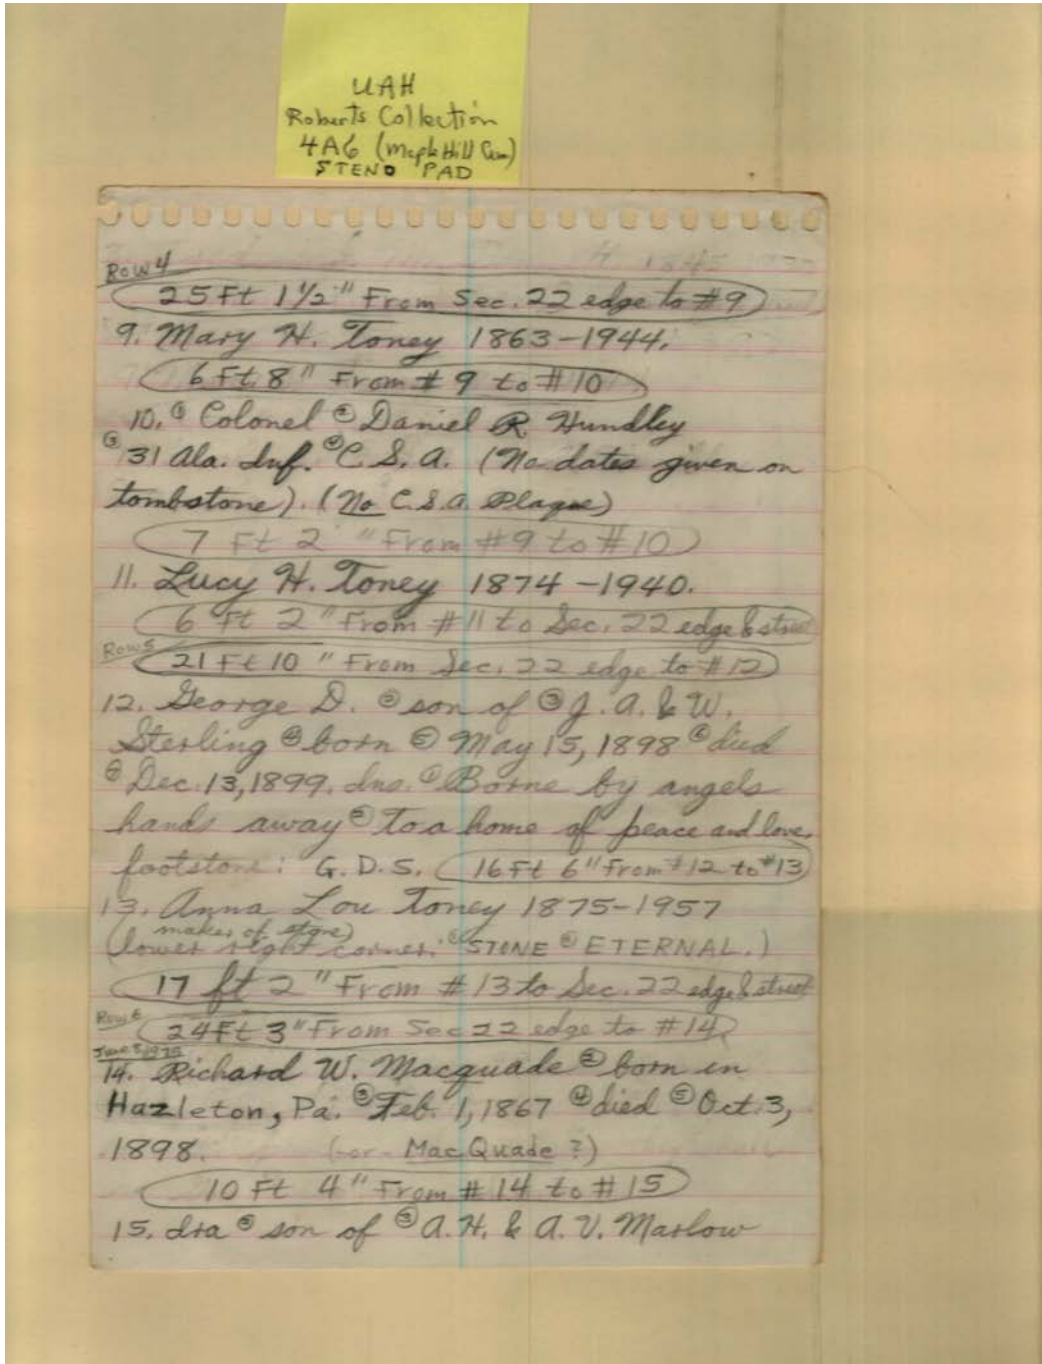 UAH
Roberts Collection
4A6 (Maple Hill Cem)
STENO PAD
Row 4
25 Ft 1 1/2" From Sec. 22 edge to #9
9. Mary H. Toney 1863-1944.
6 Ft. 8" From # 9 to # 10
10. ① Colonel ② Daniel R. Hundley
③ 31 Ala. Inf. ④ C. S. A. (No dates given on
tombstone). (No C.S.A. Plaque)
7 Ft 2 " From # 9 to # 10
11. Lucy H. Toney 1874-1940.
6 Ft 2 " From # 11 to Sec. 22 edge & street
Row 5
21 Ft 10 " From Sec. 22 edge to # 12
12. George D. ② son of ③ J. A. & W.
Sterling ④ born ⑤ May 15, 1898 ⑥ died
⑦ Dec. 13, 1899. Ins. ① Borne by angels
hands away ② To a home of peace and love.
footstone: G. D. S. 16 Ft 6" From #12 to #13
13. Anna Lou Toney 1875-1957
maker of stone)
(lower right corner: ① STONE ② ETERNAL.)
17 ft 2 " From # 13 to Sec. 22 edge & street
Row 6
24 Ft 3" From Sec 22 edge to # 14
June 5, 1975
14. Richard W. Macquade ② born in
Hazleton, Pa. ③ Feb. 1, 1867 ④ died ⑤ Oct. 3,
1898. (or MacQuade ?)
10 Ft 4" From # 14 to # 15
15. Ira ② son of ③ A. H. & A. V. Marlow